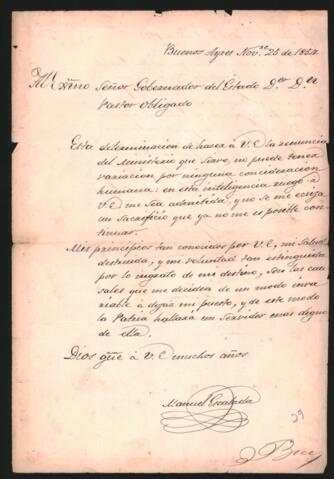 Buenos Ayres Nov.re 25 de 1854
Al Exmo Señor Gobernador del Estado D.or D.n
Pastor Obligado
Esta determinacion de hacer à V.E la renuncia
del Ministerio que sirvo, no puede tener
variacion por ninguna consideracion
humana: en esta inteligencia ruego à
V.E me sea admitida, y no se me exija
un sacrificio que ya no me es posible con-
tinuar.
Mis principios tan conocidos por V.E, mi salud
destruida, y mi voluntad tan estinguida
por lo ingrato de mi destino, son las cau-
sales que me deciden de un modo inva-
riable à dejar mi puesto, y de este modo
la Patria hallará un Servidor mas digno
de ella.
Dios gũe à V.E muchos años
Manuel
29